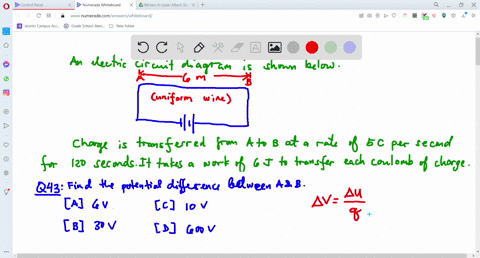 Control Panel
Numerade Whiteboard
www.numerade.com/answers/whiteboard/
An electric circuit diagram is shown below.
A 6 m B
(uniform wire)
Charge is transferred from A to B at a rate of 5C per second
for 120 seconds. It takes a work of 6 J to transfer each coulomb of charge.
Q43: Find the potential difference between A & B.
[A] 6V [C] 10 V
[B] 30 V [D] 600 V
ΔV = Δu / q